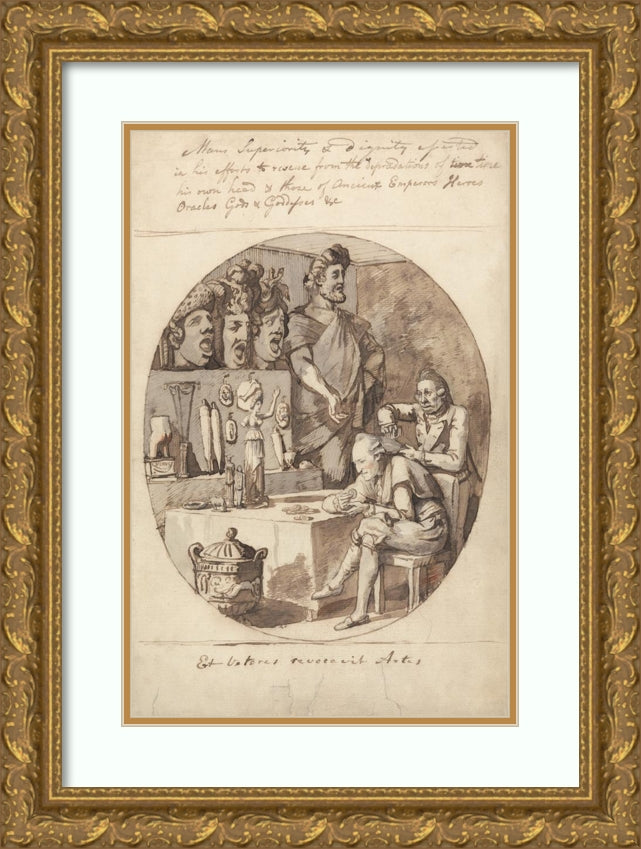 Mans Superiority & dignity asserted
in his efforts to rescue from the depradations of time
his own head & those of Ancient Emperors Heroes
Oracles Gods & Goddesses &c
Et Veteres revocavit Artes